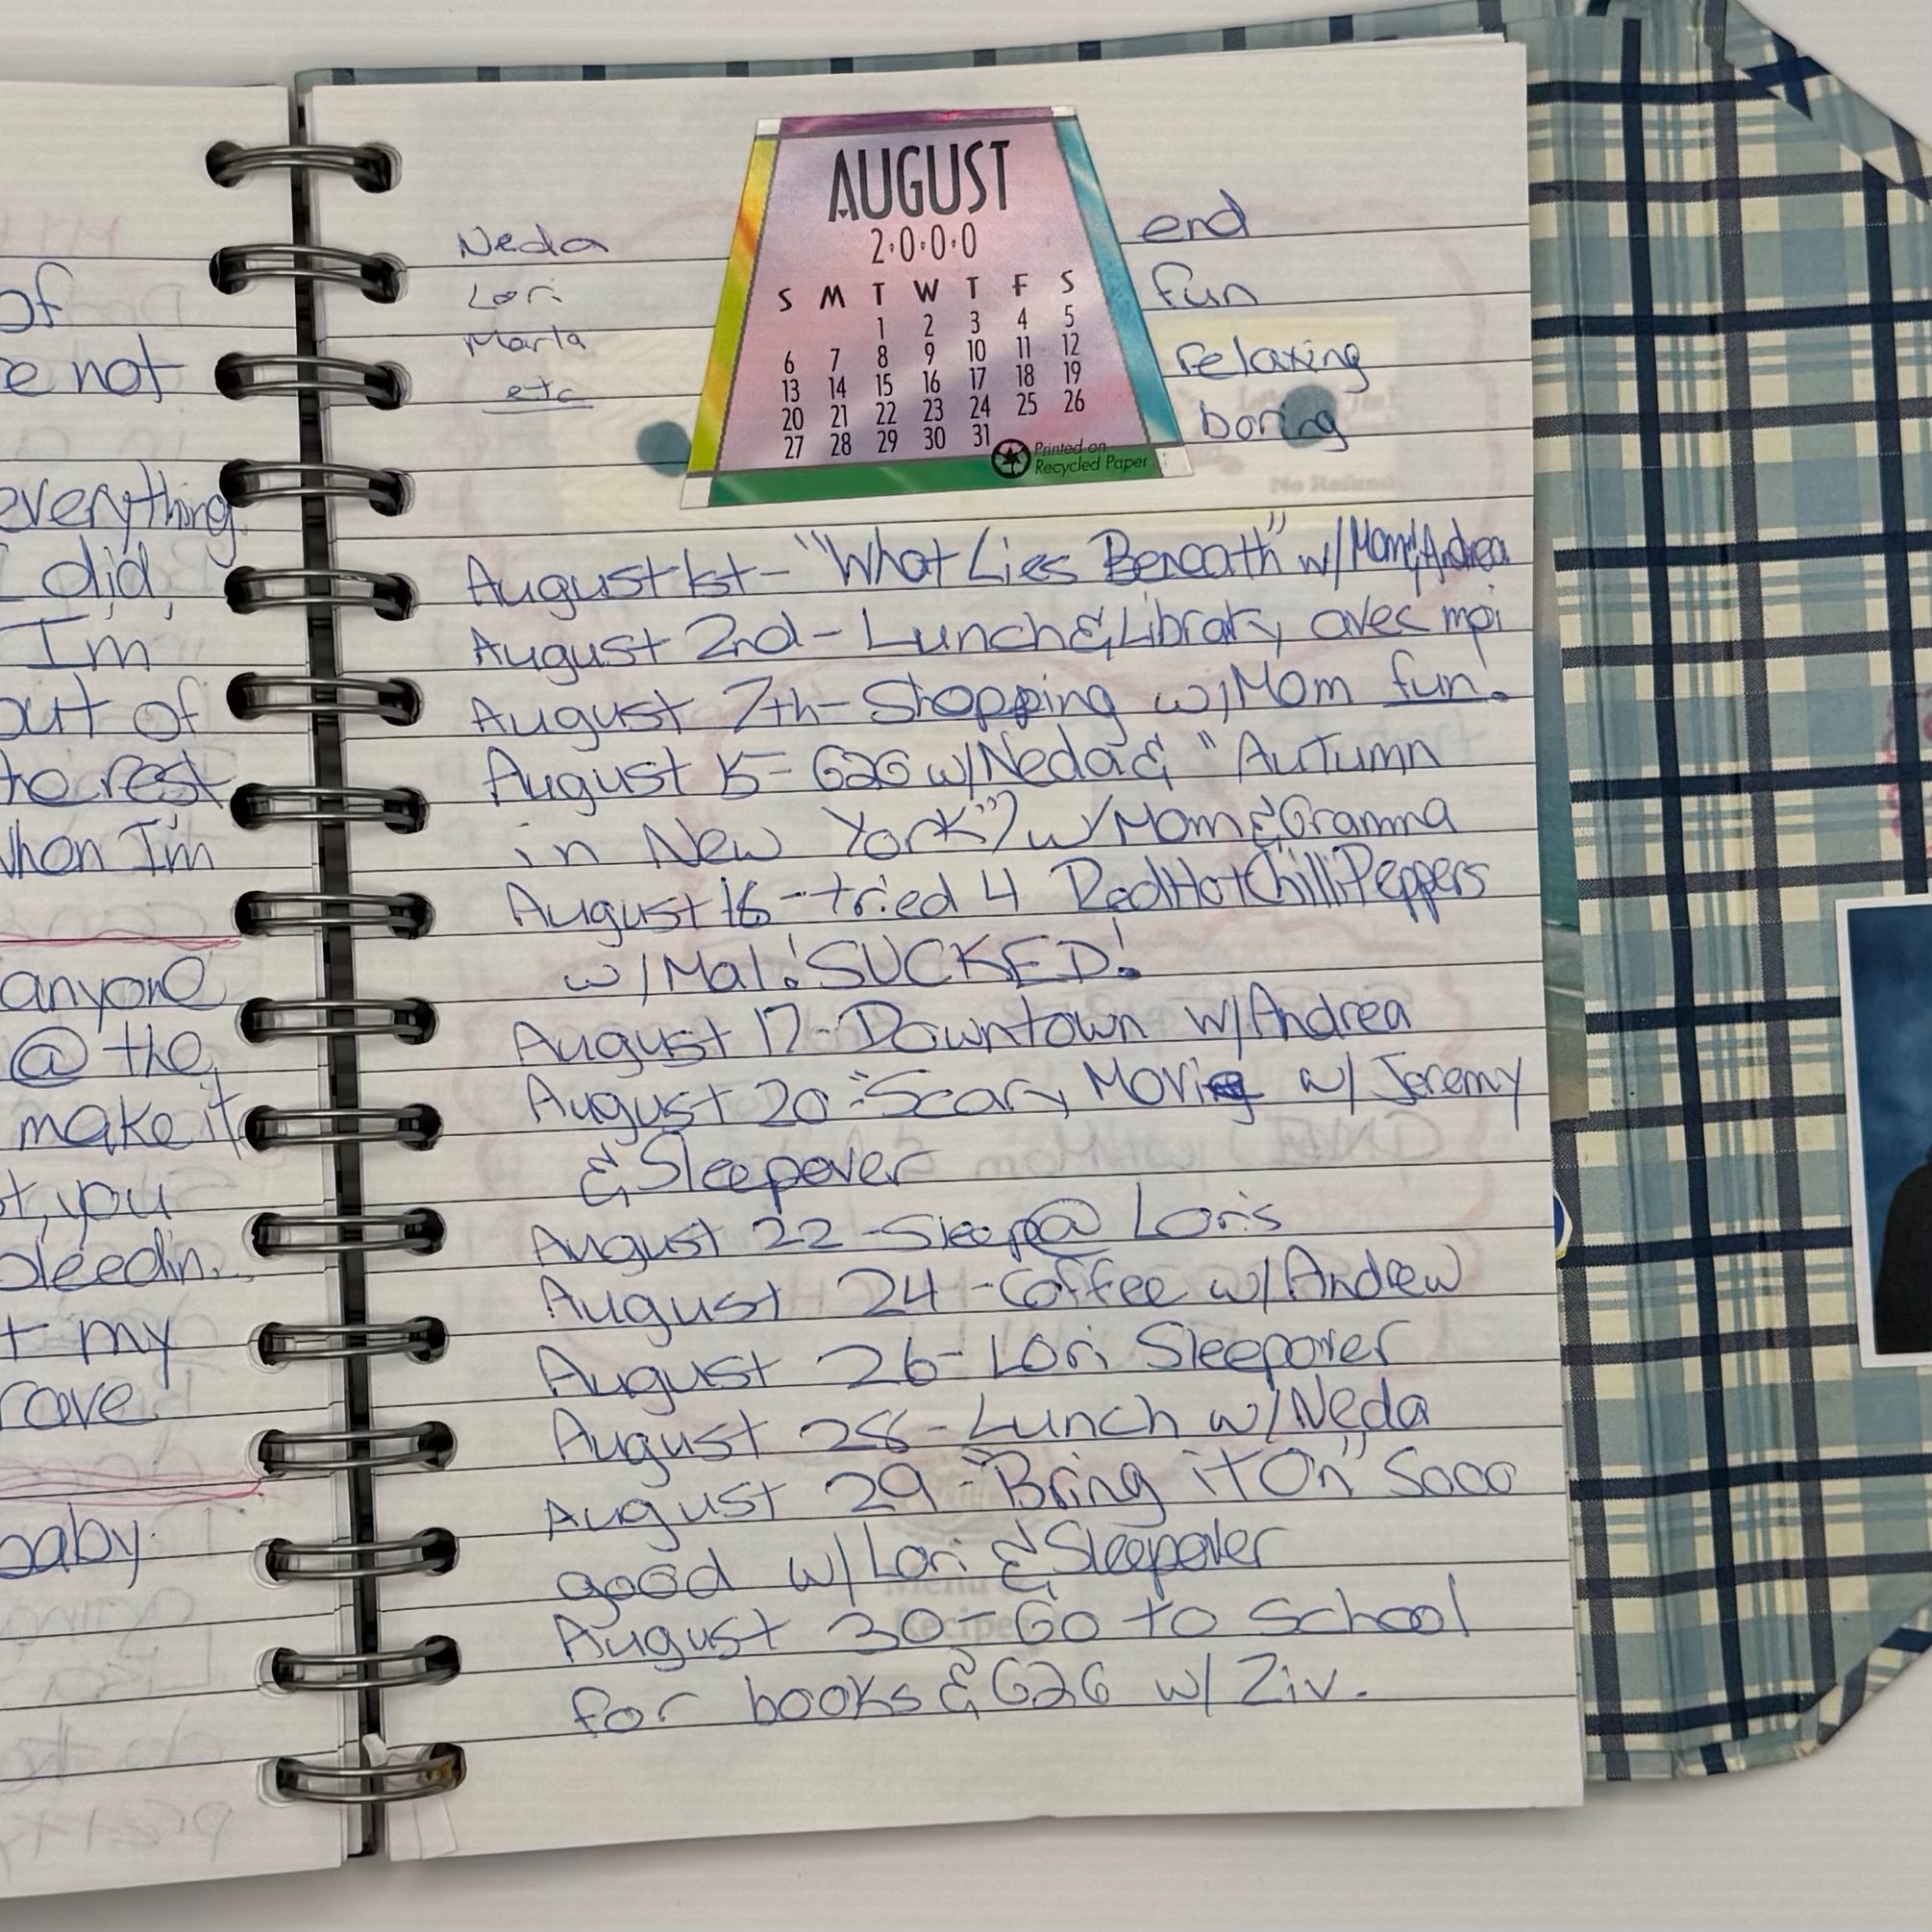 of
e not
everything
I did,
I'm
out of
to rest
when I'm
anyone
@ the
make it
t, you
bleedin..
t my
rave
baby.
Neda
Lori
Marla
etc
AUGUST
2·0·0·0
S M T W T F S
1 2 3 4 5
6 7 8 9 10 11 12
13 14 15 16 17 18 19
20 21 22 23 24 25 26
27 28 29 30 31
Printed on
Recycled Paper
end
fun
relaxing
boring
August 1st - "What Lies Beneath" w/ Mom & Andrea
August 2nd - Lunch & Library avec moi
August 7th - Shopping w/ Mom fun!
August 15 - G2G w/ Neda & "Autumn
in New York" w/ Mom & Gramma
August 16 - tried 4 Red Hot Chilli Peppers
w/ Mal! SUCKED!
August 17 - Downtown w/ Andrea
August 20 - "Scary Movie w/ Jeremy
& Sleepover
August 22 - Sleep @ Lori's
August 24 - Coffee w/ Andrew
August 26 - Lori Sleepover
August 28 - Lunch w/ Neda
August 29 - "Bring it On" Sooo
good w/ Lori & Sleepover
August 30 - Go to School
for books & G2G w/ Ziv.